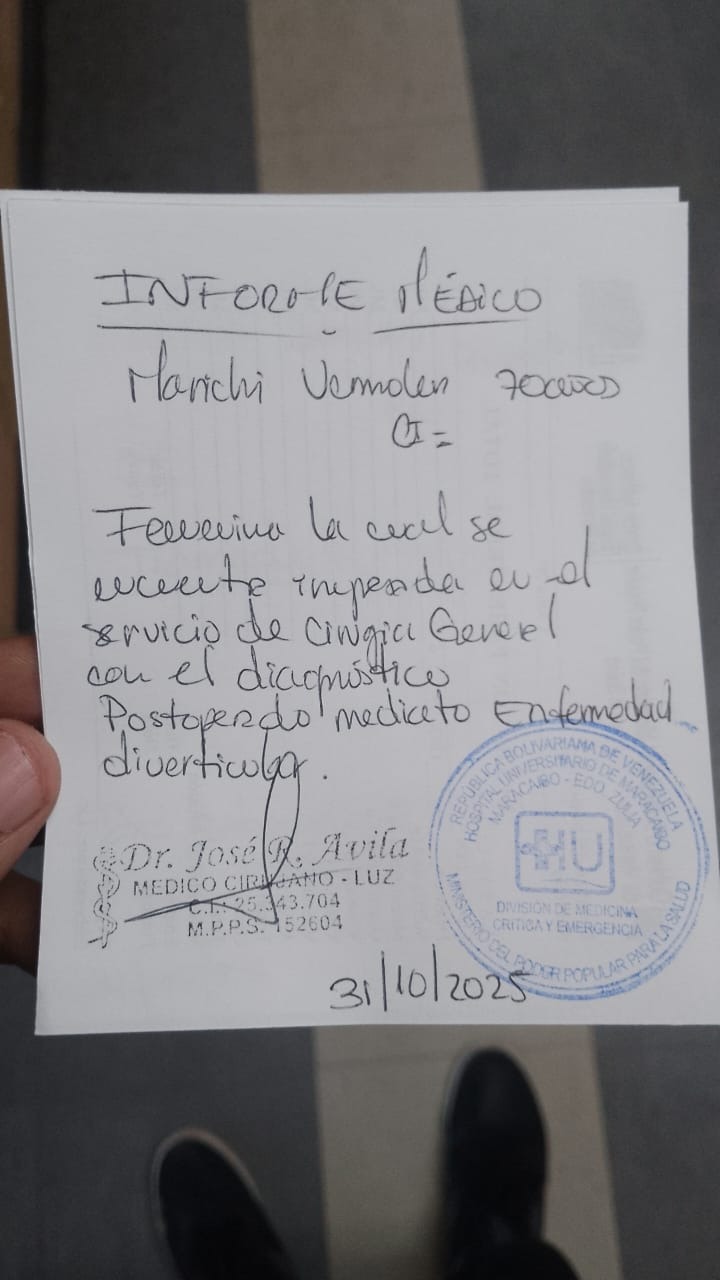 INFORME MÉDICO
Marichi Vermolen
CI=
Femenina la cual se
encuentra ingresada en el
servicio de Cirugía General
con el diagnóstico
Postoperado mediato Enfermedad
diverticular.
Dr. José R. Avila
MEDICO CIRUJANO - LUZ
C.I.: 25.343.704
M.P.P.S. 152604
REPÚBLICA BOLIVARIANA DE VENEZUELA
HOSPITAL UNIVERSITARIO DE MARACAIBO
MARACAIBO - EDO. ZULIA
HU
DIVISIÓN DE MEDICINA
CRITICA Y EMERGENCIA
MINISTERIO DEL PODER POPULAR PARA LA SALUD
31/10/2025